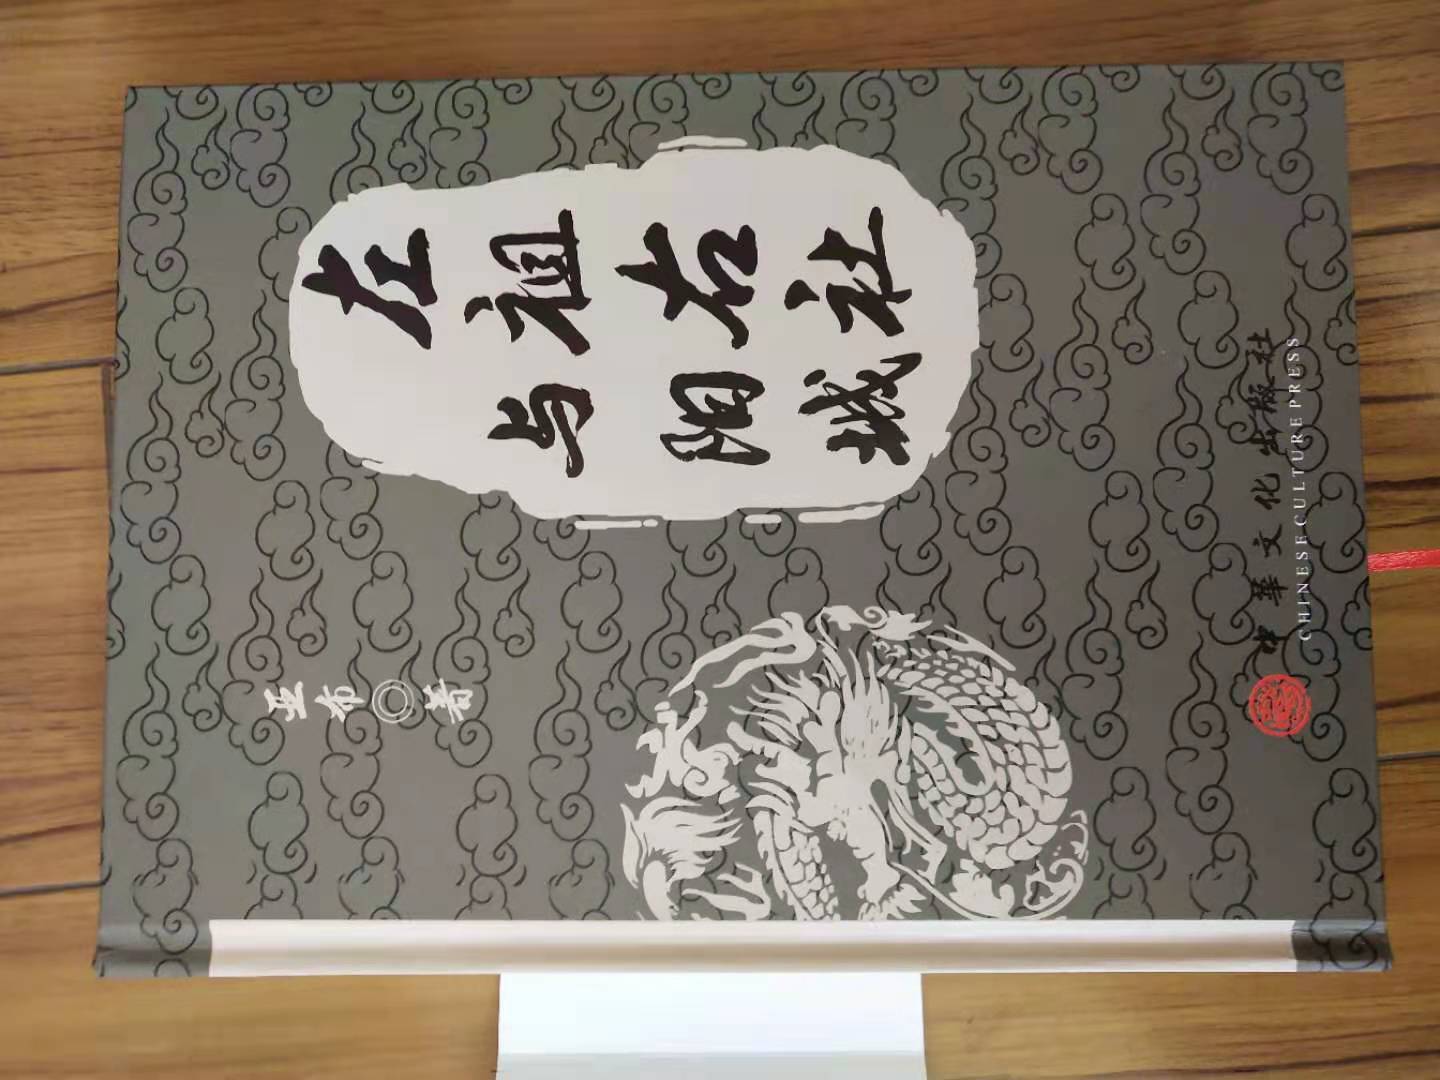 左祖右社
与阳城
布◎著
中華文化出版社
CHINESE CULTURE PRESS